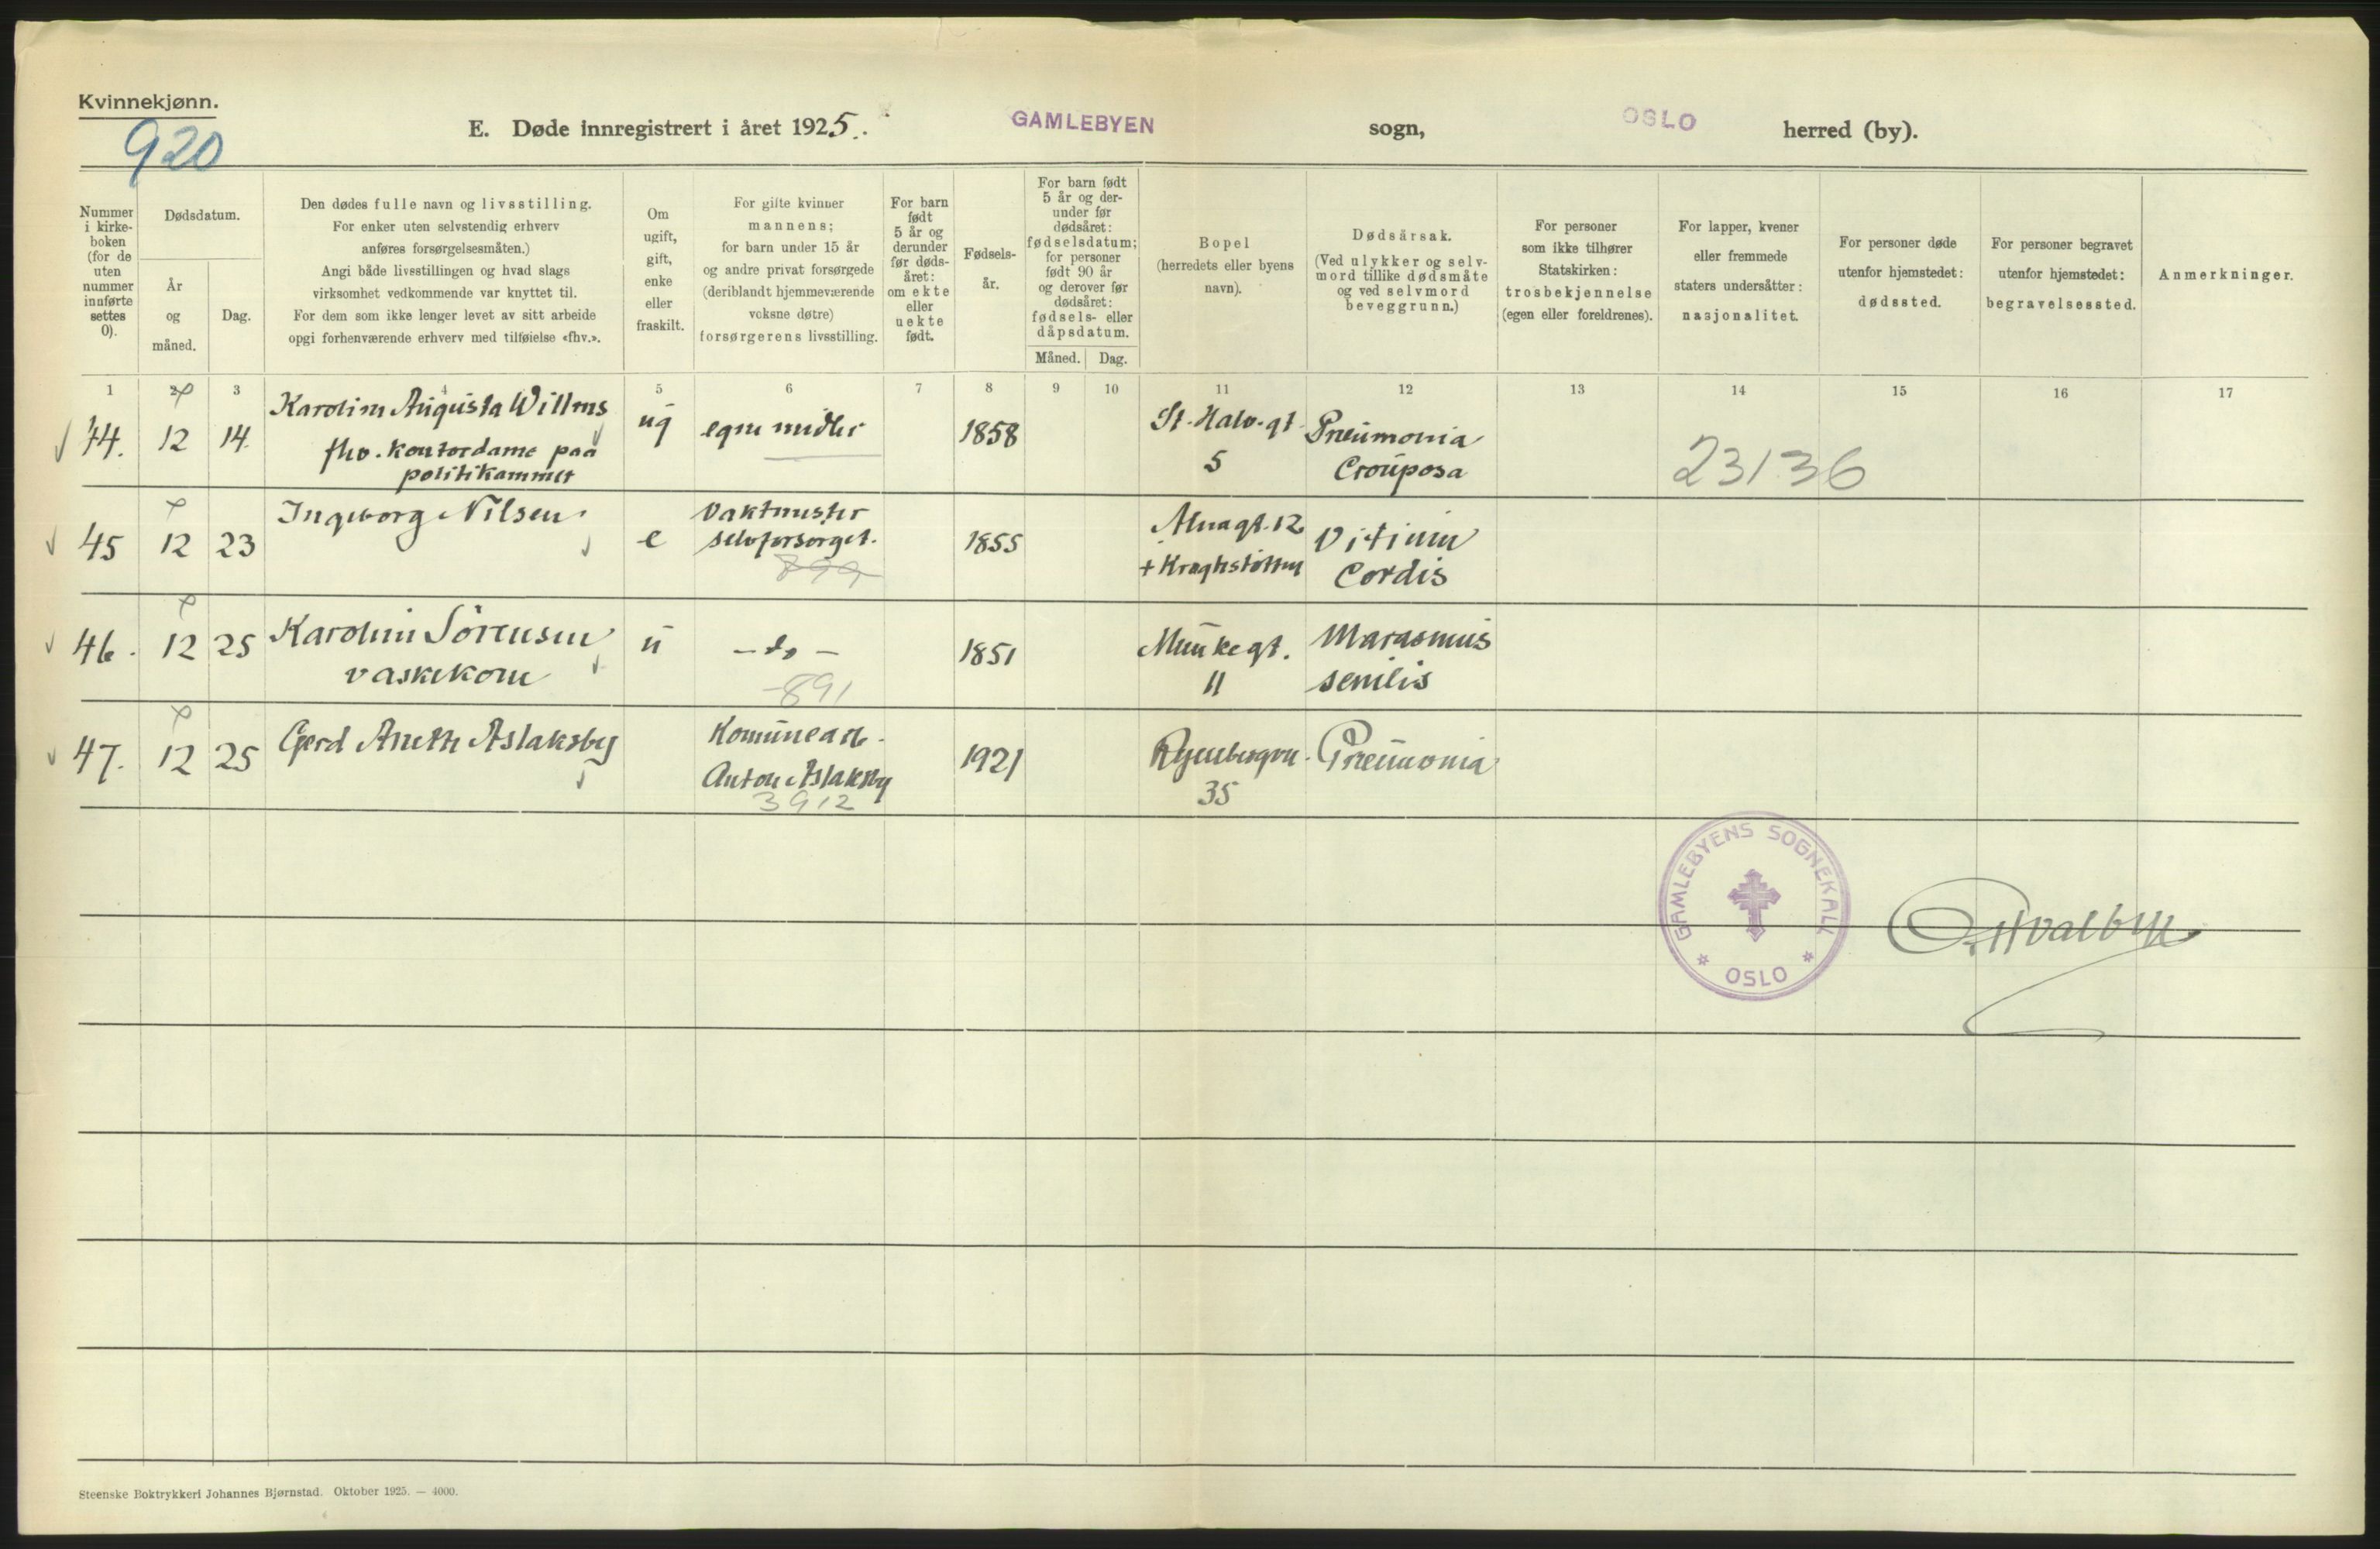 Kvinnekjønn.
920
E. Døde innregistrert i året 1925. GAMLEBYEN sogn, OSLO herred (by).
Nummer i kirke-boken (for de uten nummer innførte settes 0).
Dødsdatum.
År og måned.
Dag.
Den dødes fulle navn og livsstilling.
For enker uten selvstendig erhverv
anføres forsørgelsesmåten.)
Angi både livsstillingen og hvad slags
virksomhet vedkommende var knyttet til.
For dem som ikke lenger levet av sitt arbeide
opgi forhenværende erhverv med tilføielse «fhv.».
Om ugift, gift, enke eller fraskilt.
For gifte kvinner
mannens;
for barn under 15 år
og andre privat forsørgede
(deriblandt hjemmeværende
voksne døtre)
forsørgerens livsstilling.
For barn født 5 år og derunder før døds-året: om ekte eller uekte født.
Fødsels-år.
For barn født
5 år og der-
under før
dødsåret:
fødselsdatum;
for personer
født 90 år
og derover før
dødsåret:
fødsels- eller
dåpsdatum.
Måned. Dag.
Bopel
(herredets eller byens
navn).
Dødsårsak.
(Ved ulykker og selv-
mord tillike dødsmåte
og ved selvmord
beveggrunn.)
For personer
som ikke tilhører
Statskirken:
trosbekjennelse
(egen eller foreldrenes).
For lapper, kvener
eller fremmede
staters undersåtter:
nasjonalitet.
For personer døde
utenfor hjemstedet:
dødssted.
For personer begravet
utenfor hjemstedet:
begravelsessted.
Anmerkninger.
1 2 3 4 5 6 7 8 9 10 11 12 13 14 15 16 17
44. 12 14. Karoline Augusta Willms ug egne midler 1858 St. Halv. gt. Pneumonia
fhv. Kontordame paa 5 Crouposa
politikammet
23136
45 12 23 Ingeborg Nilsen e Vaktmester 1855 Almagt. 12 Vitium
selvforsørget. + Kraghstøtten Cordis
899
46. 12 25 Karoline Sörensen u - do - 1851 Munkegt. Marasmus
vaskekone 11 senilis
891
47. 12 25 Gerd Aneth Aslaksby Komunearb. 1921 Ryenbergvn. Pneumonia
Anton Aslaksby 35
3912
GAMLEBYENS SOGNEKALL
OSLO
Steenske Boktrykkeri Johannes Bjørnstad. Oktober 1925. — 4000.